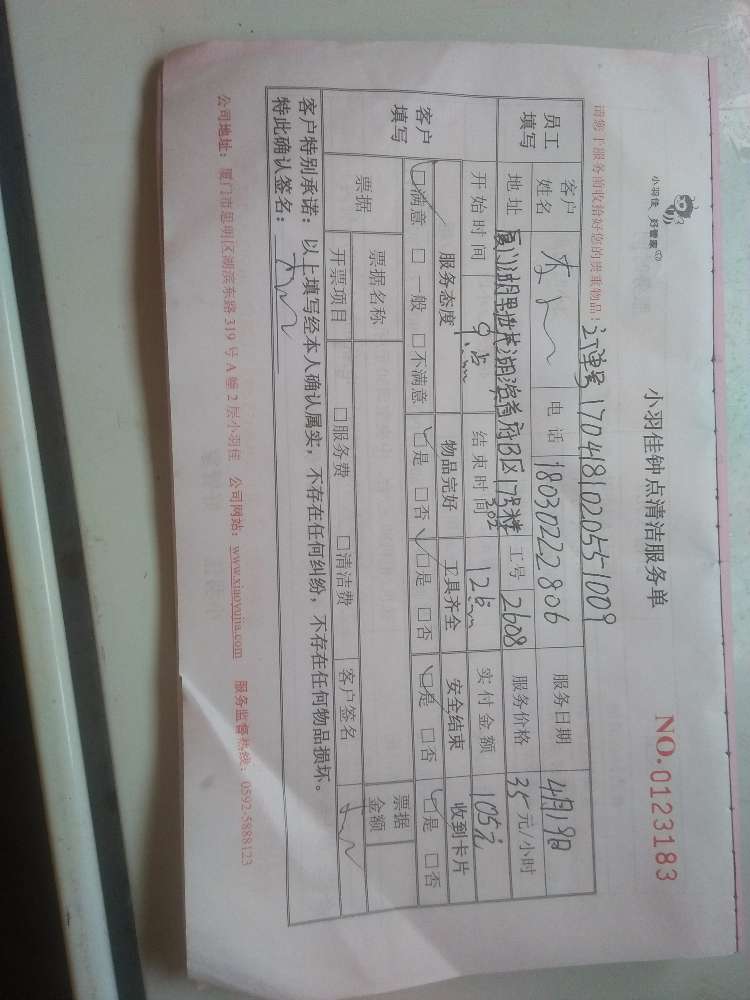 小羽佳 好管家
小羽佳钟点清洁服务单
NO.0123183
订单号1704181020551009
请您于服务前收拾好您的贵重物品！
员工填写
客户姓名 电话 18030222806 服务日期 4月19日
地址 厦门湖里世茂湖滨首府B区17号楼302 工号 2608 服务价格 35元/小时
开始时间 9点 结束时间 12点 实付金额 105元
客户填写
服务态度 物品完好 工具齐全 安全结束 收到卡片
☑满意 □一般 □不满意 ☑是 □否 ☑是 □否 ☑是 □否 ☑是 □否
票据 票据名称 票据金额
开票项目 □服务费 □清洁费 客户签名
客户特别承诺：以上填写经本人确认属实，不存在任何纠纷，不存在任何物品损坏。
特此确认签名：
公司地址：厦门市思明区湖滨东路319号A幢2层小羽佳 公司网站：www.xiaoyujia.com 服务监督热线：0592-5888123